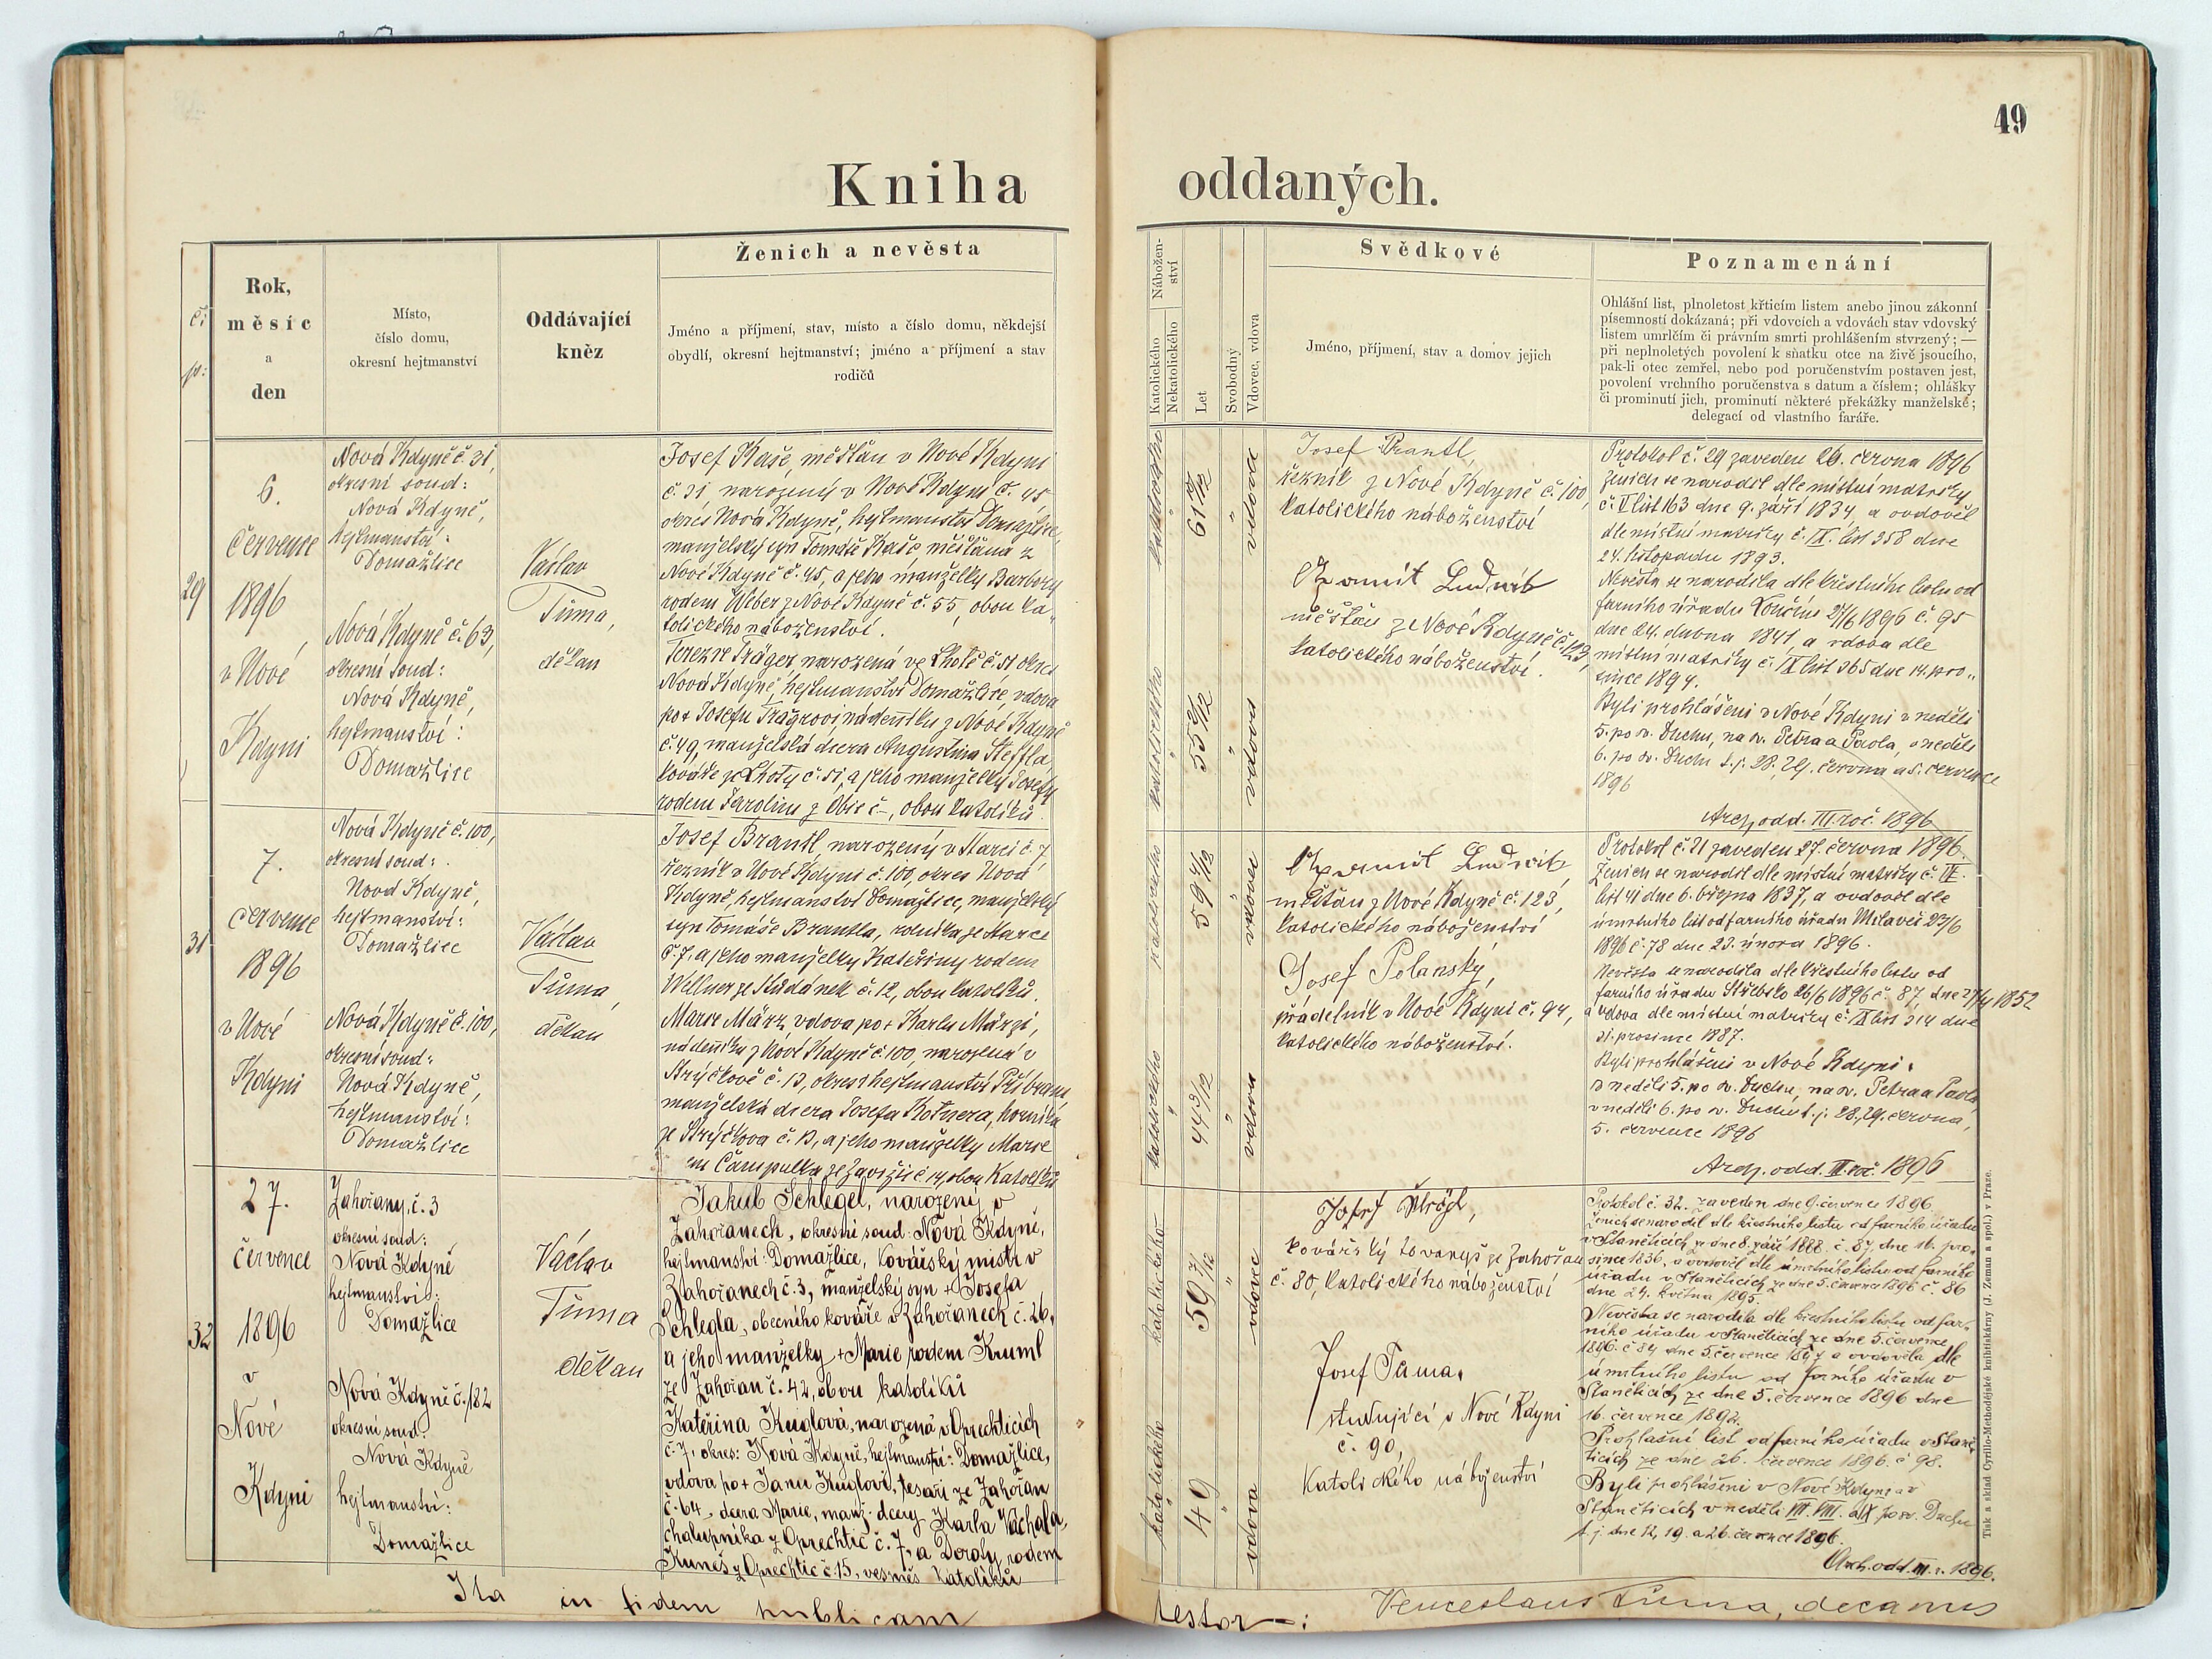 49
Kniha oddaných.
či
po:
Rok,
měsíc
a
den
Místo,
číslo domu,
okresní hejtmanství
Oddávající
kněz
Ženich a nevěsta
Jméno a příjmení, stav, místo a číslo domu, někdejší
obydlí, okresní hejtmanství; jméno a příjmení a stav
rodičů
Nábožen-
ství
Katolického
Nekatolického
Let
Svobodný
Vdovec, vdova
Svědkové
Jméno, příjmení, stav a domov jejich
Poznamenání
Ohlášní list, plnoletost křticím listem anebo jinou zákonní
písemností dokázaná; při vdovcích a vdovách stav vdovský
listem umrlčím či právním smrti prohlášením stvrzený; —
při neplnoletých povolení k sňatku otce na živě jsoucího,
pak-li otec zemřel, nebo pod poručenstvím postaven jest,
povolení vrchního poručenstva s datum a číslem; ohlášky
či prominutí jich, prominutí některé překážky manželské;
delegací od vlastního faráře.
29
6.
července
1896
v Nové
Kdyni
Nová Kdyně č. 31,
okresní soud:
Nová Kdyně,
hejtmanství:
Domažlice
Nová Kdyně č. 63,
okresní soud:
Nová Kdyně,
hejtmanství:
Domažlice
Václav
Tůma,
děkan
Josef Kaše, měšťan v Nové Kdyni
č. 31 narozený v Nové Kdyni č. 45
okres Nová Kdyně, hejtmanství Domažlice,
manželský syn Tomáše Kaše měšťana z
Nové Kdyně č. 45, a jeho manželky Barbory
rodem Weber z Nové Kdyně č. 55, obou ka-
tolického náboženství.
Terezie Träger narozená ve Lhotě č. 51 okres
Nová Kdyně, hejtmanství Domažlice, vdova
po + Josefu Trägrovi nádeníku z Nové Kdyně
č. 49, manželská dcera Augustina Steffla,
kováře ze Lhoty č. 51, a jeho manželky Josefy
rodem Karolini z Obie č –, obou katolíků.
katolického
61 10/12
vdovec
katolického
55 2/12
vdova
Josef Brantl,
řezník z Nové Kdyně č. 100,
katolického náboženství
Ludwik
měšťan z Nové Kdyně č. 123,
katolického náboženství.
Protokol č. 29 zaveden 26. června 1896
Ženich se narodil dle místní matriky
č. V list 163 dne 9. září 1834, a ovdověl
dle místní matriky č. IX. list 358 dne
24. listopadu 1893.
Nevěsta se narodila dle křestního listu od
farního úřadu Loučim 27/6 1896 č. 95
dne 24. dubna 1841, a vdova dle
místní matriky č. IX list 365 dne 14. pro-
since 1894.
Byli prohlášeni v Nové Kdyni v neděli
5. po sv. Duchu, na sv. Petra a Pavla, v neděli
6. po sv. Duchu t. j. 28., 29. června a 5. července
1896
Arch. odd. III. roč. 1896
31
7.
července
1896
v Nové
Kdyni
Nová Kdyně č. 100,
okresní soud:
Nová Kdyně,
hejtmanství:
Domažlice
Nová Kdyně č. 100,
okresní soud:
Nová Kdyně,
hejtmanství:
Domažlice
Václav
Tůma,
děkan
Josef Brantl, narozený v Starci č. 7
řezník v Nové Kdyni č. 100, okres Nová
Kdyně, hejtmanství Domažlice, manželský
syn Tomáše Brantla, rolníka ze Starce
č. 7, a jeho manželky Kateřiny rodem
Wellner ze Studánek č. 12, obou katolíků.
Marie März vdova po + Karlu Märzi,
nádeníku z Nové Kdyně č. 100, narozená v
Strýčkově č. 13, okres hejtmanství Příbram,
manželská dcera Josefa Kotnera, horníka
ze Strýčkova č. 13, a jeho manželky Marie
obou katolíků
katolického
59 4/12
vdovec
katolického
44 3/12
vdova
Ludwik
měšťan z Nové Kdyně č. 123,
katolického náboženství
Josef Polanský,
přádelník v Nové Kdyni č. 94,
katolického náboženství.
Protokol č. 21 zaveden 27. června 1896.
Ženich se narodil dle místní matriky č. IX.
list 41 dne 6. března 1837, a ovdověl dle
úmrtního list od farního úřadu Milaveč 23/6
1896 č. 78 dne 23. února 1896.
Nevěsta se narodila dle křestního listu od
farního úřadu 26/6 1896 č. 87, dne 27/4 1852
a vdova dle místní matriky č. IX list 314 dne
31. prosince 1887.
Byli prohlášeni v Nové Kdyni:
v neděli 5. po sv. Duchu, na sv. Petra a Pavla
v neděli 6. po sv. Duchu t. j. 28., 29. června,
5. července 1896
Arch. odd. III. roč. 1896
32
27.
července
1896
v
Nové
Kdyni
Zahořany, č. 3
okresní soud:
Nová Kdyně
hejtmanství:
Domažlice
Nová Kdyně č. 182
okresní soud:
Nová Kdyně
hejtmanství:
Domažlice
Václav
Tůma
děkan
Jakub Schlegel, narozený v
Zahořanech, okresní soud: Nová Kdyně,
hejtmanství: Domažlice, kovářský mistr v
Zahořanech č. 3, manželský syn + Josefa
Schlegla, obecního kováře v Zahořanech č. 26,
a jeho manželky + Marie rodem Kruml
ze Zahořan č. 42, obou katolíků
Kateřina Kuglová, narozená v Oprechticích
č. 7, okres: Nová Kdyně, hejtmanství: Domažlice,
vdova po + Janu Kuglovi, tesaři ze Zahořan
č. 64, dcera Marie, manž. dcery Karla Váchala,
chalupníka z Oprechtic č. 7, a Doroty rodem
Kuneš z Oprechtic č. 15, vesměs katolíků
katolického
59 7/12
vdovec
katolického
49
vdova
Josef
kovářský tovaryš ze Zahořan
č. 80, katolického náboženství
Josef Tůma,
studující v Nové Kdyni
č. 90,
katolického náboženství
Protokol č. 32. zaveden dne 9. července 1896.
Ženich se narodil dle křestního listu od farního úřadu
v Staněticích ze dne 8. září 1888. č. 87, dne 16. pro-
since 1836, a ovdověl dle úmrtního listu od farního
úřadu v Staněticích ze dne 5. července 1896 č. 86
dne 24. května 1895.
Nevěsta se narodila dle křestního listu od far-
ního úřadu v Staněticích ze dne 5. července
1896. č 84 dne 5 července 1847 a ovdověla dle
úmrtního listu od farního úřadu v
Staněticích ze dne 5. července 1896 dne
16. července 1892.
Prohlašní list od farního úřadu v Staně-
ticích ze dne 26. července 1896. č 98.
Byli prohlášeni v Nové Kdyni a v
Staněticích v neděli VII. VIII. a IX po sv. Duchu
t. j. dne 12, 19. a 26. července 1896.
Arch. odd. III. r. 1896.
Ita in fidem publicam testor –: Venceslaus Tůma, decanus
Tisk a sklad Cyrillo-Methodějské knihtiskárny (J. Zeman a spol.) v Praze.